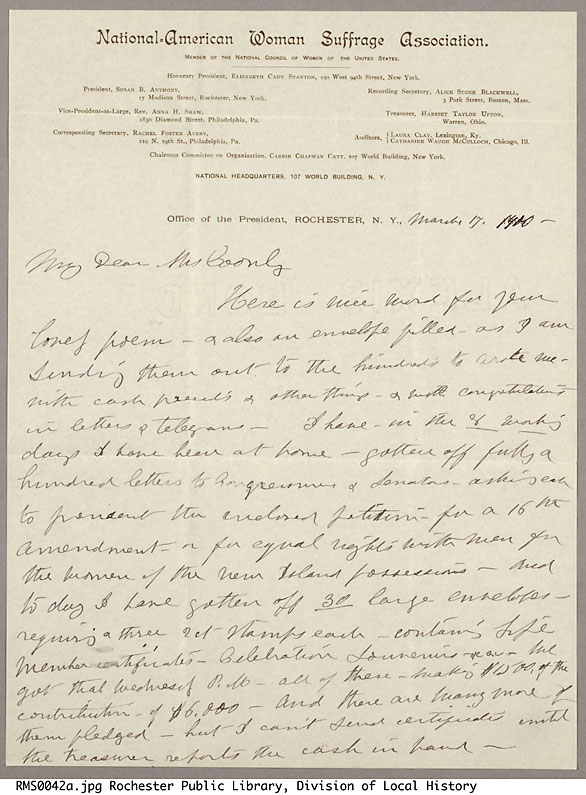 National-American Woman Suffrage Association.
MEMBER OF THE NATIONAL COUNCIL OF WOMEN OF THE UNITED STATES.
Honorary President, ELIZABETH CADY STANTON, 250 West 94th Street, New York.
President, SUSAN B. ANTHONY,
17 Madison Street, Rochester, New York.
Recording Secretary, ALICE STONE BLACKWELL,
3 Park Street, Boston, Mass.
Vice-President-at-Large, REV. ANNA H. SHAW,
1830 Diamond Street, Philadelphia, Pa.
Treasurer, HARRIET TAYLOR UPTON,
Warren, Ohio.
Corresponding Secretary, RACHEL FOSTER AVERY,
119 N. 19th St., Philadelphia, Pa.
Auditors, { LAURA CLAY, Lexington, Ky.
{ CATHARINE WAUGH McCULLOCH, Chicago, Ill.
Chairman Committee on Organization, CARRIE CHAPMAN CATT, 107 World Building, New York.
NATIONAL HEADQUARTERS, 107 WORLD BUILDING, N. Y.
Office of the President, ROCHESTER, N. Y., March 17. 1900 -
My Dear Mrs Coonly
Here is nice word for your
lovely poem - & also an envelope filled - as I am
sending them out to the hundreds to wrote me -
with cash presents & other things - & with congratulations
in letters & telegrams - I have - in the 8 working
days I have been at home - gotten off fully a
hundred letters to Congressmen & Senators - asking each
to present the enclosed petition - for a 16th
amendment - or for equal rights with men for
the women of the new Island possessions - and
to day I have gotten off 30 large envelopes -
requiring a three 2ct stamps each - containing Life
Member certificates - Celebration Souvenirs - &c - We
got that Wednesday P.M - all of these - making $1500, of the
contribution - of $6,000 - And there are many more of
them pledged - but I can't send certificates until
the treasurer reports the cash in hand -
RMS0042a.jpg Rochester Public Library, Division of Local History